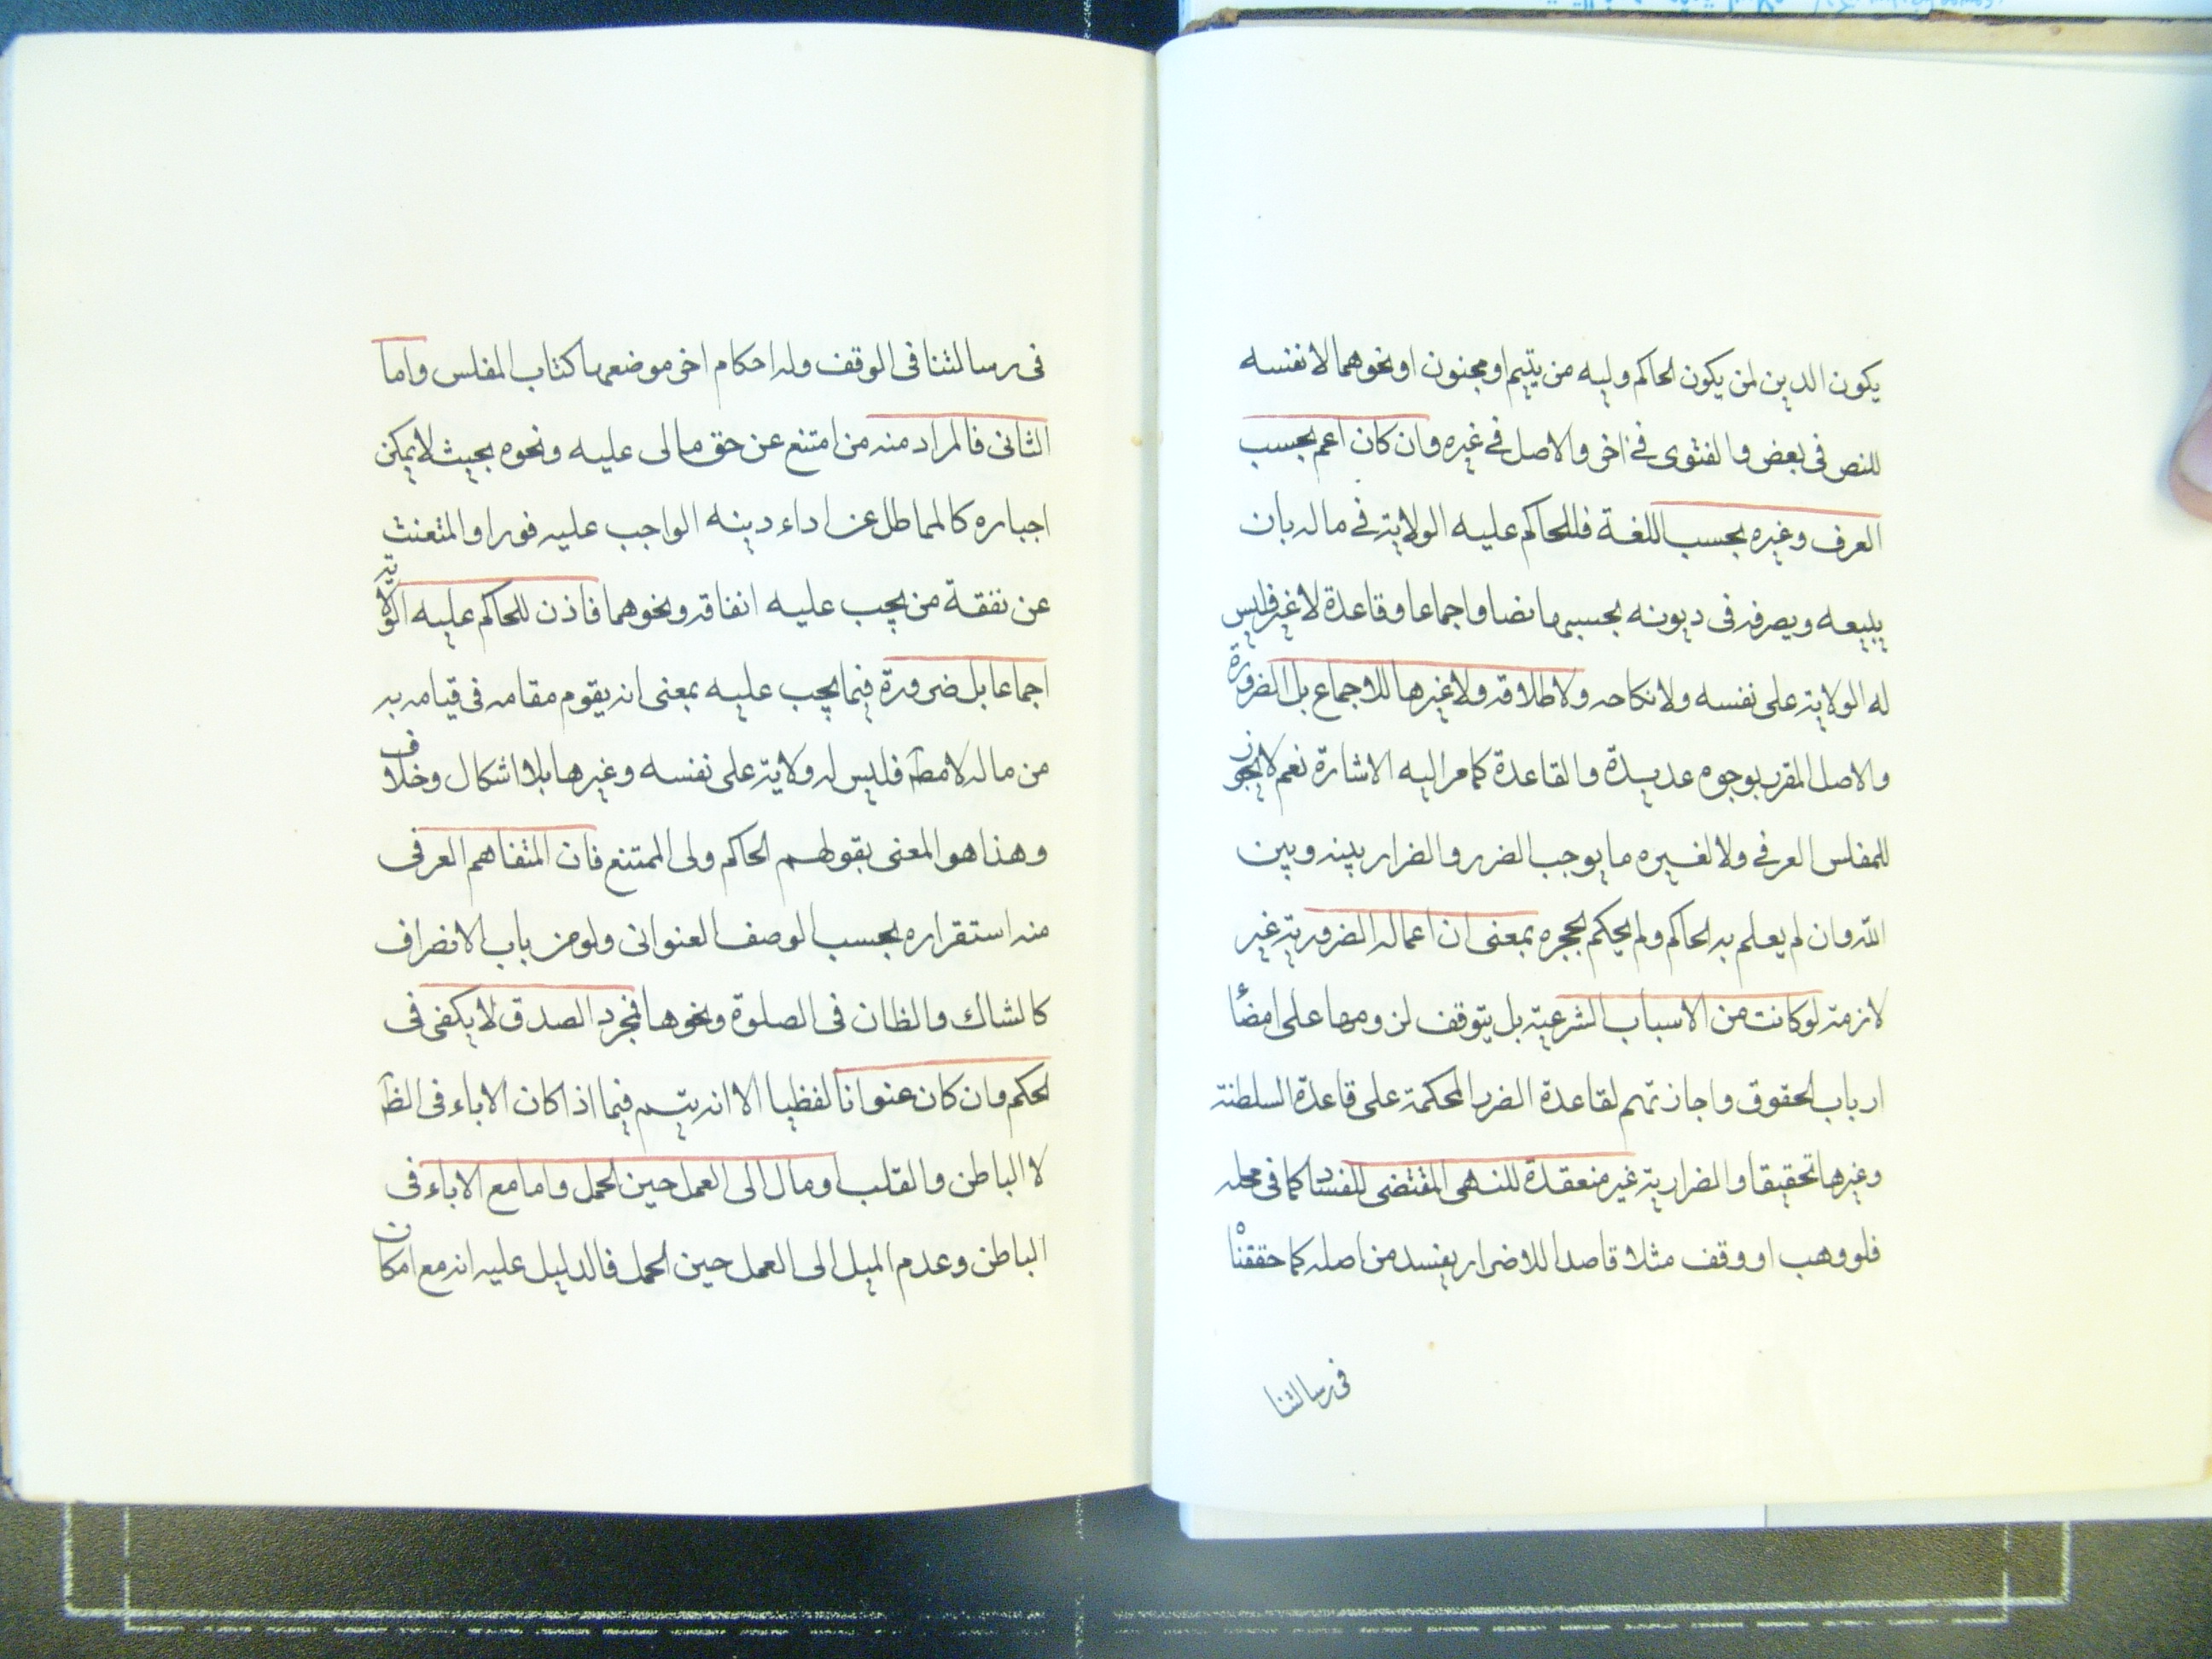 يكون الدين لمن يكون الحاكم وليه من يتيم او مجنون او نحوهما لا نفسه
للنص فى بعض والفتوى فے اخر والاصل فے غيره وان كان اعم بحسب
العرف وغيره بحسب اللغة فللحاكم عليه الولاية فے ماله بان
يبيعه ويصرفه فى ديونه بحسبها نصا واجماعا وقاعدة لا غير فليس
له الولاية على نفسه ولا نكاحه ولا طلاقه ولا غيرها للاجماع بل الضرورة
والاصل المقرر بوجوه عديدة والقاعدة كما مر اليه الاشارة نعم لا يجوز
للمفلس العرفے ولا لغيره ما يوجب الضرر والضرار بينه وبين
الله وان لم يعلم به الحاكم ولم يحكم بحجره بمعنى ان اعماله الضررية غير
لازمة لو كانت من الاسباب الشرعية بل يتوقف لزومها على امضاء
ارباب الحقوق واجازتهم لقاعدة الضرر المحكمة على قاعدة السلطنة
وغيرها تحقيقا والضرارية غير منعقدة للنهى المقتضى للفساد كما فى محله
فلو وهب او وقف مثلا قاصدا للاضرار يفسد من اصله كما حققناه
فى رسالتنا
فى رسالتنا فى الوقف وله احكام اخر موضعها كتاب المفلس واما
الثانى فالمراد منه من امتنع عن حق مالى عليه ونحوه بحيث لا يمكن
اجباره كالمماطل عن اداء دينه الواجب عليه فورا والمتعنت
عن نفقة من يجب عليه انفاقه ونحوهما فاذن للحاكم عليه الولاية
اجماعا بل ضرورة فيما يجب عليه بمعنى انه يقوم مقامه فى قيامه به
من ماله لا مطآ فليس له ولاية على نفسه وغيرها بلا اشكال وخلاف
وهذا هو المعنى بقولهم الحاكم ولى الممتنع فان المتفاهم العرفى
منه استقراره بحسب الوصف العنوانى ولو من باب الانصراف
كالشاك والظان فى الصلوة ونحوها فمجرد الصدق لا يكفى فى
الحكم وان كان عنوانا لفظيا الا انه يتم فيما اذا كان الاباء فى الظآ
لا الباطن والقلب او مال الى العمل حين الحمل واما مع الاباء فى
الباطن وعدم الميل الى العمل حين الحمل فالدليل عليه انه مع امكان